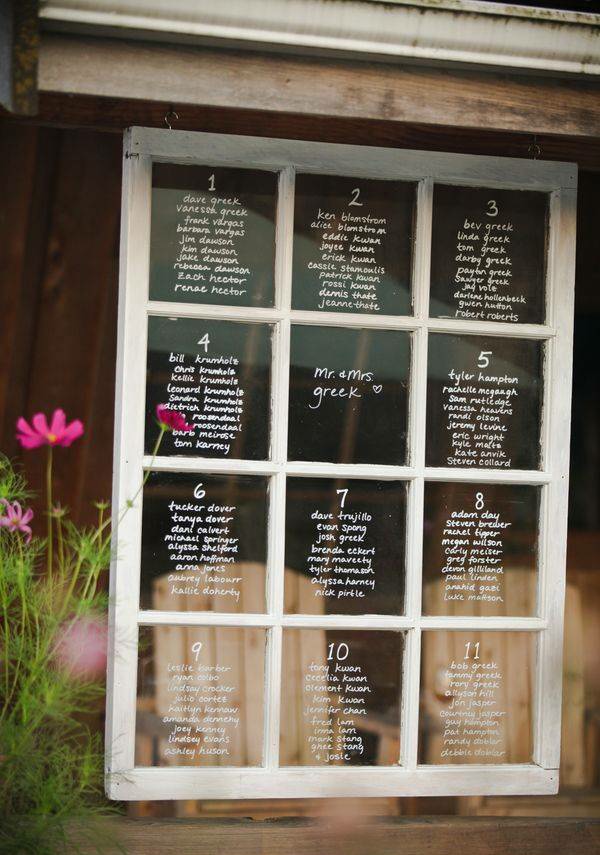 1
dave greek
vanessa greek
frank vargas
barbara vargas
jim dawson
kim dawson
jake dawson
rebecca dawson
zach hector
renae hector
2
ken blomstrom
alice blomstrom
eddie kwan
joyee kwan
erick kwan
cassie stamoulis
patrick kwan
rossi kwan
dennis thate
jeanne thate
3
bev greek
linda greek
tom greek
darby greek
payton greek
Sawyer greek
jay volz
darlene hollenbeck
gwen hutton
robert roberts
4
bill krumholz
chris krumholz
kellie krumholz
leonard krumholz
Sandra krumholz
dietrich krumholz
roosendaal
roosendaal
barb meirose
tom karney
Mr. & Mrs.
greek ♡
5
tyler hampton
rachelle mcgaugh
Sam rutledge
vanessa heavens
randi olson
jeremy levine
eric wright
kyle maltz
kate anvik
Steven collard
6
tucker dover
tanya dover
dani calvert
michael springer
alyssa shelford
aaron hoffman
anna jones
aubrey labourr
kallie doherty
7
dave trujillo
evan spong
josh greek
brenda eckert
mary maveety
tyler thomason
alyssa harney
nick pirtle
8
adam day
Steven brewer
rachel tipper
megan wilson
carly meiser
greg forster
devon gilliland
paul linden
anahid gazi
luke mattson
9
leslie barber
ryan colbo
lindsay crocker
julio cortez
kaitlyn kennaw
amanda dennehy
joey kenney
lindsey evans
ashley huson
10
tony kwan
cecelia kwan
clement kwan
kim kwan
jennifer chan
fred lam
irma lam
mark stang
ghee stang
& josie
11
bob greek
tammy greek
rory greek
allyson hill
jon jasper
courtney jasper
guy hampton
pat hampton
randy doblar
debbie doblar